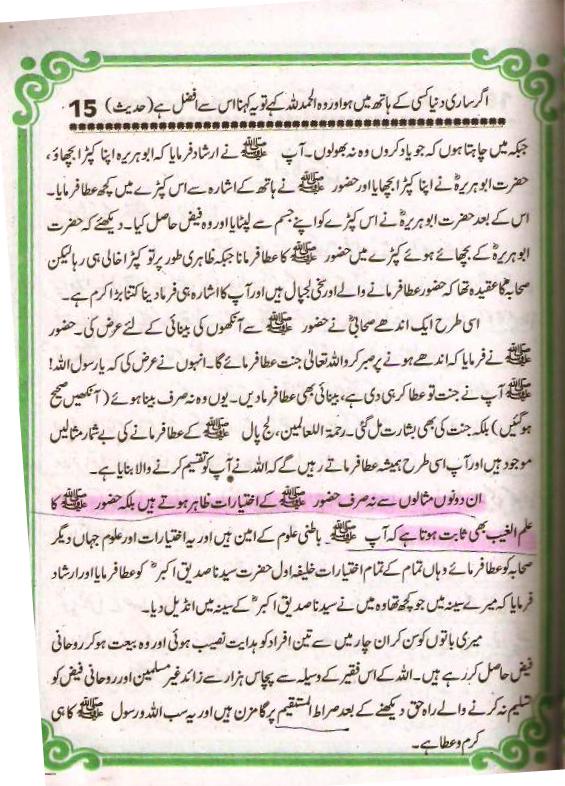 اگر ساری دنیا کسی کے ہاتھ میں ہو اور وہ الحمد للہ کہے تو یہ کہنا اس سے افضل ہے (حدیث) 15
جبکہ میں چاہتا ہوں کہ جو یاد کروں وہ نہ بھولوں۔ آپ ﷺ نے ارشاد فرمایا کہ ابو ہریرہ اپنا کپڑا بچھاؤ،
حضرت ابو ہریرہؓ نے اپنا کپڑا بچھایا اور حضور ﷺ نے ہاتھ کے اشارہ سے اس کپڑے میں کچھ عطا فرمایا۔
اس کے بعد حضرت ابو ہریرہؓ نے اس کپڑے کو اپنے جسم سے لپٹایا اور وہ فیض حاصل کیا۔ دیکھئے کہ حضرت
ابو ہریرہؓ کے بچھائے ہوئے کپڑے میں حضور ﷺ کا عطا فرمانا جبکہ ظاہری طور پر تو کپڑا خالی ہی رہا لیکن
صحابہؓ کا عقیدہ تھا کہ حضور عطا فرمانے والے اور سخی لجپال ہیں اور آپ کا اشارہ ہی فرما دینا کتنا بڑا کرم ہے۔
اسی طرح ایک اندھے صحابیؓ نے حضور ﷺ سے آنکھوں کی بینائی کے لئے عرض کی۔ حضور
ﷺ نے فرمایا کہ اندھے ہونے پر صبر کرو اللہ تعالیٰ جنت عطا فرمائے گا۔ انہوں نے عرض کی کہ یا رسول اللہ!
ﷺ آپ نے جنت تو عطا کر ہی دی ہے، بینائی بھی عطا فرما دیں۔ یوں وہ نہ صرف بینا ہوئے (آنکھیں صحیح
ہو گئیں) بلکہ جنت کی بھی بشارت مل گئی۔ رحمۃ اللعالمین، لج پال ﷺ کے عطا فرمانے کی بے شمار مثالیں
موجود ہیں اور آپ اسی طرح ہمیشہ عطا فرماتے رہیں گے کہ اللہ نے آپ کو تقسیم کرنے والا بنایا ہے۔
ان دونوں مثالوں سے نہ صرف حضور ﷺ کے اختیارات ظاہر ہوتے ہیں بلکہ حضور ﷺ کا
علم الغیب بھی ثابت ہوتا ہے کہ آپ ﷺ باطنی علوم کے امین ہیں اور یہ اختیارات اور علوم جہاں دیگر
صحابہ کو عطا فرمائے وہاں تمام کے تمام اختیارات خلیفہ اول حضرت سیدنا صدیق اکبرؓ کو عطا فرمایا اور ارشاد
فرمایا کہ میرے سینہ میں جو کچھ تھا وہ میں نے سیدنا صدیق اکبرؓ کے سینہ میں انڈیل دیا۔
میری باتوں کو سن کر ان چار میں سے تین افراد کو ہدایت نصیب ہوئی اور وہ بیعت ہو کر روحانی
فیض حاصل کر رہے ہیں۔ اللہ کے اس فقیر کے وسیلہ سے پچاس ہزار سے زائد غیر مسلمین اور روحانی فیض کو
تسلیم نہ کرنے والے راہ حق دیکھنے کے بعد صراط المستقیم پر گامزن ہیں اور یہ سب اللہ و رسول ﷺ کا ہی
کرم و عطا ہے۔